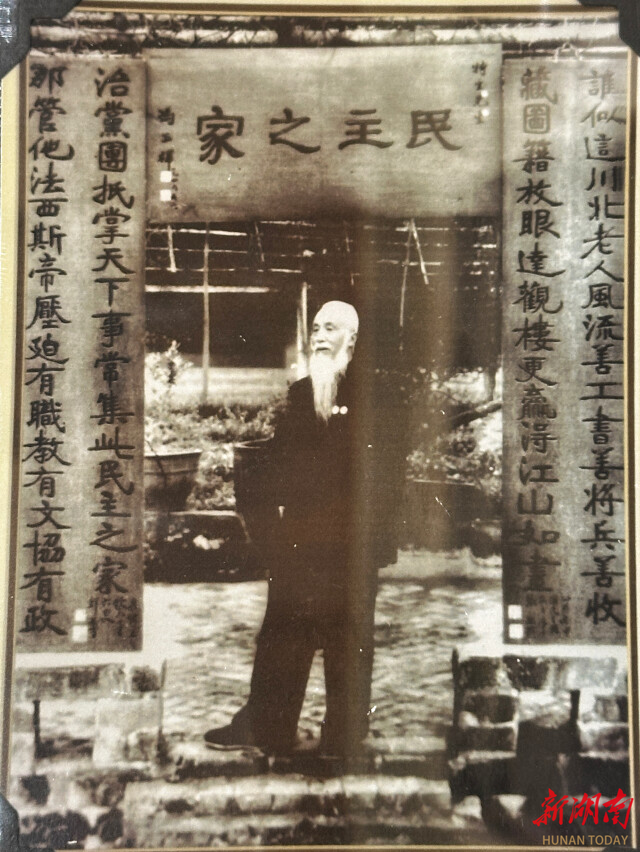 民主之家
特生先生
馮玉祥
誰似這川北老人風流善工書善將兵善收
藏圖籍放眼達觀樓更贏得江山如畫
那管他法西斯帝壓迫有職教有文協有政
治黨團抵掌天下事常集此民主之家
新湖南
HUNAN TODAY